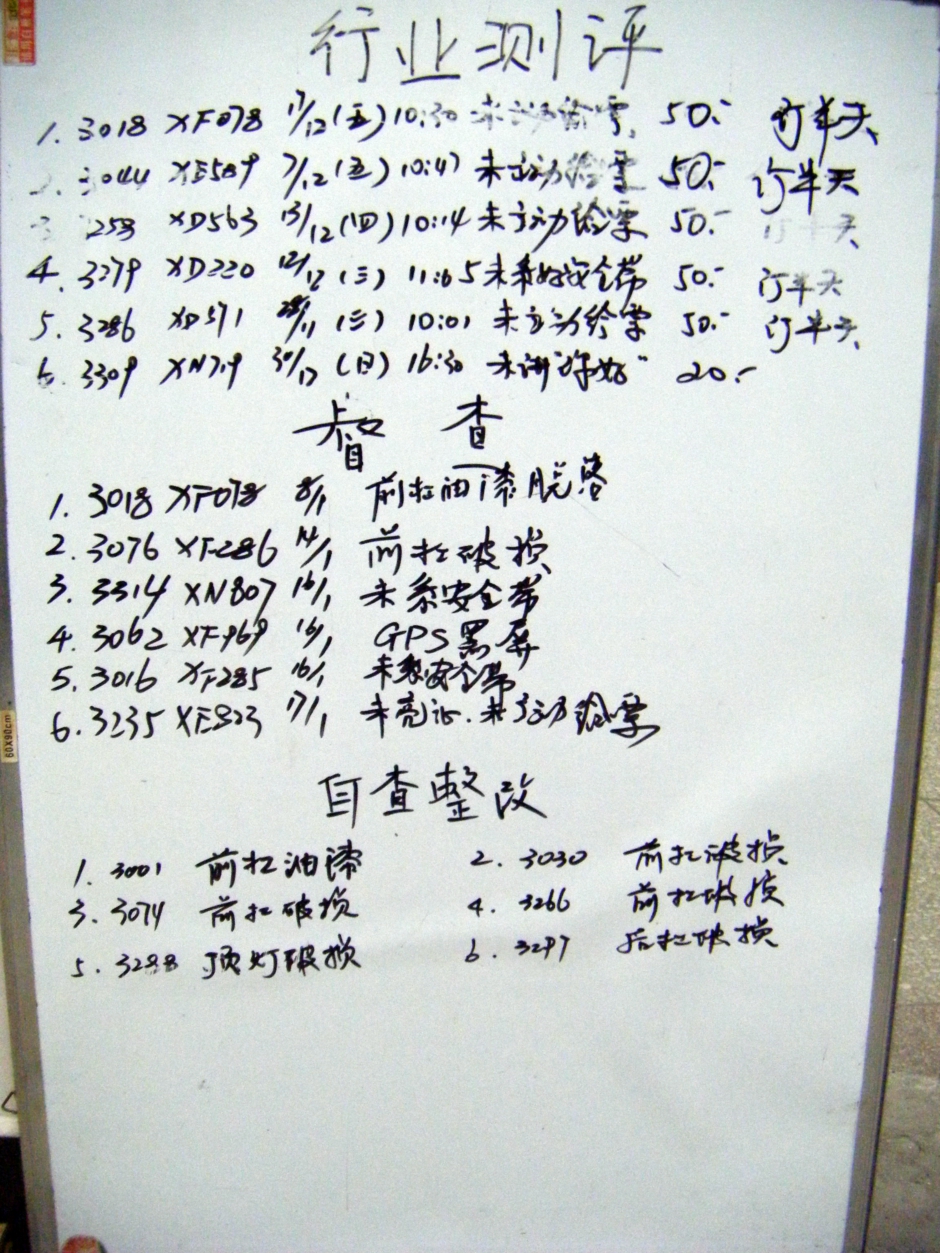 行业测评
1. 3018 XF078 17/12(五) 10:30 未主动给票 50.- 订半天
3044 XE589 7/12(五) 10:47 未主动给票 50.- 订半天
3 258 XD563 13/12(四) 10:14 未主动给票 50.- 订半天
4. 3279 XD220 12/12(三) 11:05 未系好安全带 50.- 订半天
5. 3286 XD571 28/11(三) 10:01 未主动给票 50.- 订半天
6. 3309 XN719 30/12(日) 16:30 未讲“你好” 20.-
督 查
1. 3018 XF078 8/1 前杠油漆脱落
2. 3076 XF286 14/1 前杠破损
3. 3314 XN807 16/1 未系安全带
4. 3062 XF969 16/1 GPS黑屏
5. 3016 XF285 16/1 未系安全带
6. 3235 XE823 17/1 未亮证.未主动给票
60X90cm
自查整改
1. 3001 前杠油漆 2. 3030 前杠破损
3. 3074 前杠破损 4. 3266 前杠破损
5. 3288 顶灯破损 6. 3297 后杠破损